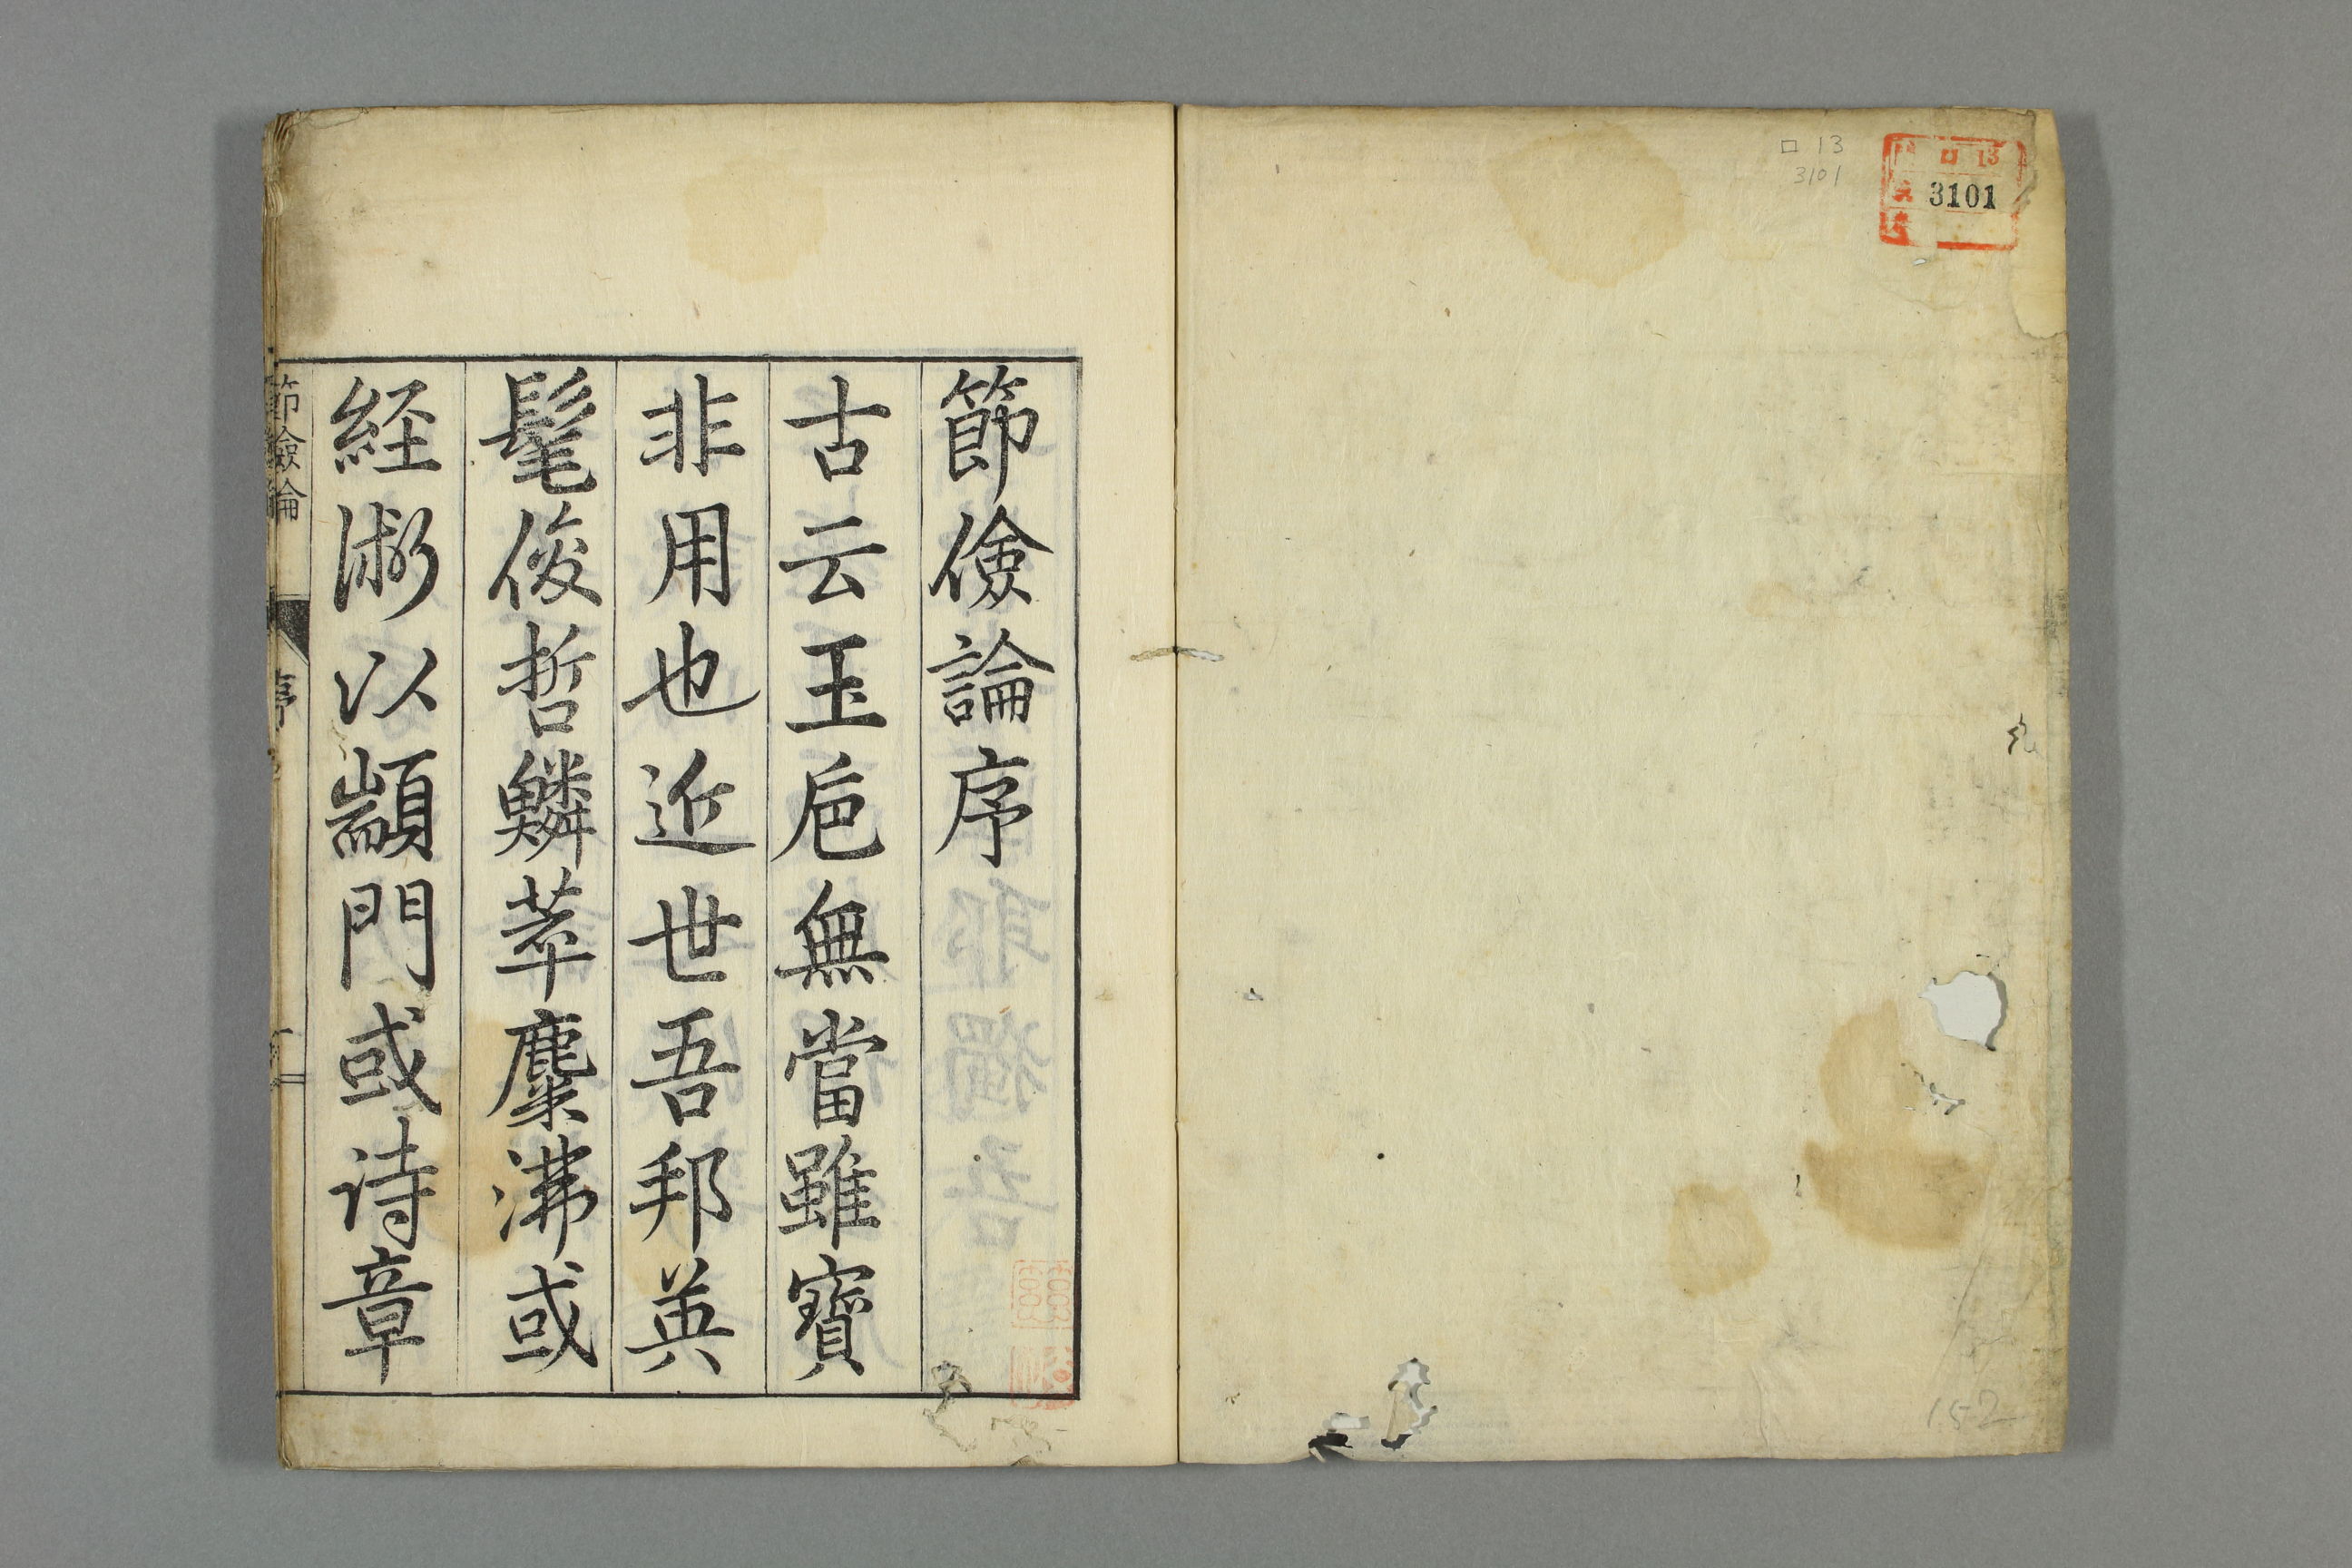 ロ 13
3101
ロ 13
3101
152
節儉論序
古云玉巵無當雖寶
非用也近世吾邦英
髦俊哲鱗萃麇沸或
経術以顓門或诗章
節儉論
序